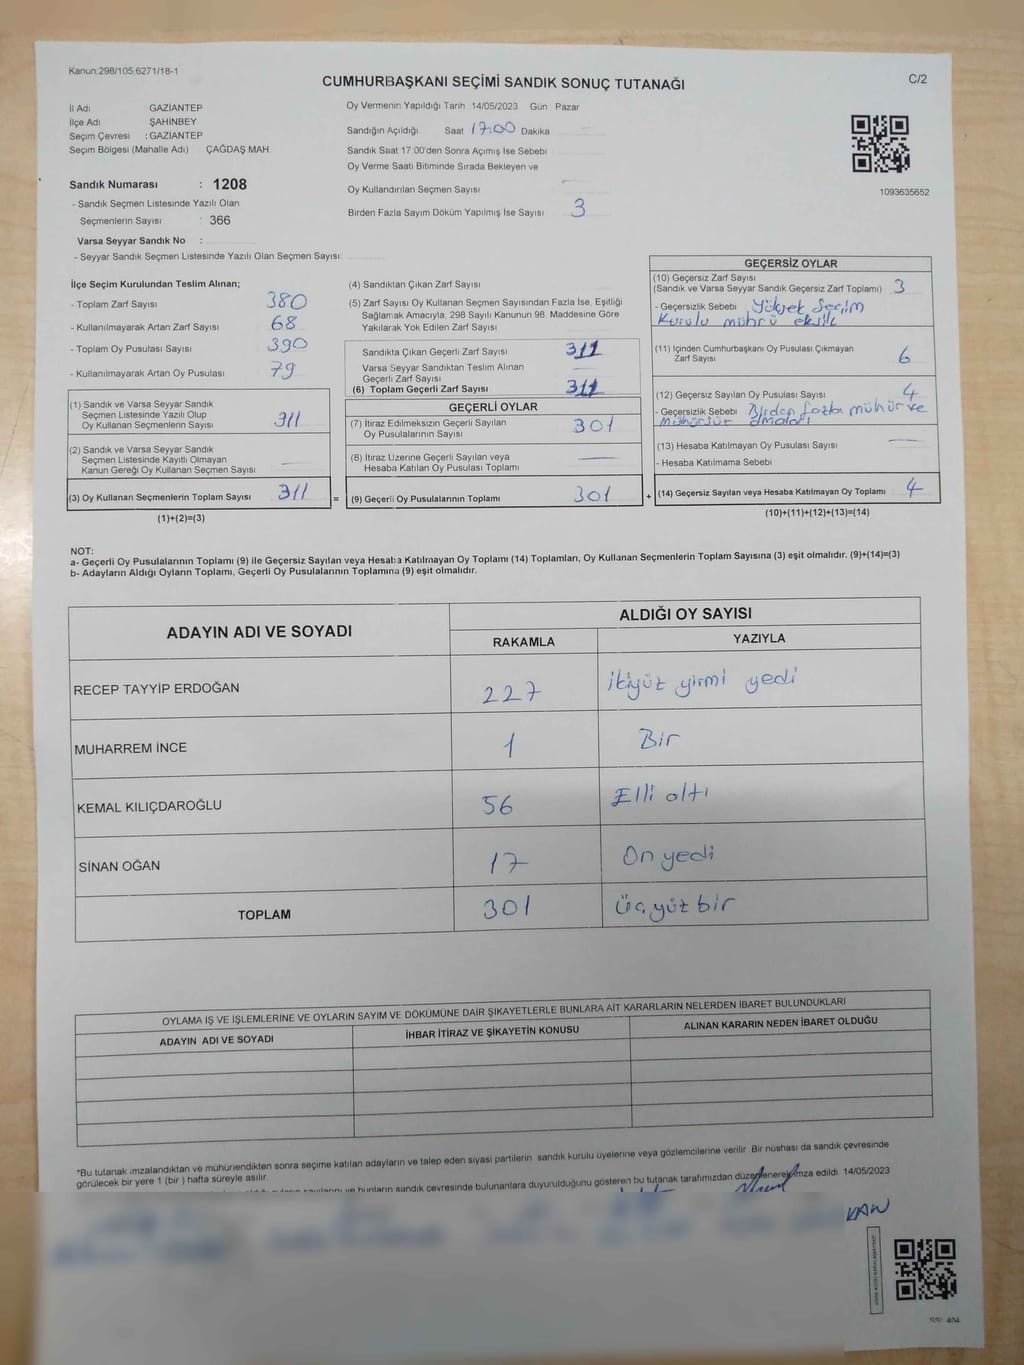 Kanun:298/105,6271/18-1
CUMHURBAŞKANI SEÇİMİ SANDIK SONUÇ TUTANAĞI
C/2
İl Adı GAZİANTEP
İlçe Adı ŞAHİNBEY
Seçim Çevresi : GAZİANTEP
Seçim Bölgesi (Mahalle Adı) ÇAĞDAŞ MAH.
Sandık Numarası : 1208
- Sandık Seçmen Listesinde Yazılı Olan
Seçmenlerin Sayısı : 366
Varsa Seyyar Sandık No :
- Seyyar Sandık Seçmen Listesinde Yazılı Olan Seçmen Sayısı:
Oy Vermenin Yapıldığı Tarih 14/05/2023 Gün Pazar
Sandığın Açıldığı Saat 17:00 Dakika
Sandık Saat 17:00'den Sonra Açımış İse Sebebi
Oy Verme Saati Bitiminde Sırada Bekleyen ve
Oy Kullandırılan Seçmen Sayısı
Birden Fazla Sayım Döküm Yapılmış İse Sayısı 3
1093635652
İlçe Seçim Kurulundan Teslim Alınan;
- Toplam Zarf Sayısı 380
- Kullanılmayarak Artan Zarf Sayısı 68
- Toplam Oy Pusulası Sayısı 390
- Kullanılmayarak Artan Oy Pusulası 79
(1) Sandık ve Varsa Seyyar Sandık
Seçmen Listesinde Yazılı Olup
Oy Kullanan Seçmenlerin Sayısı 311
(2) Sandık ve Varsa Seyyar Sandık
Seçmen Listesinde Kayıtlı Olmayan
Kanun Gereği Oy Kullanan Seçmen Sayısı
(3) Oy Kullanan Seçmenlerin Toplam Sayısı 311 =
(1)+(2)=(3)
(4) Sandıktan Çıkan Zarf Sayısı
(5) Zarf Sayısı Oy Kullanan Seçmen Sayısından Fazla İse, Eşitliği
Sağlamak Amacıyla, 298 Sayılı Kanunun 98. Maddesine Göre
Yakılarak Yok Edilen Zarf Sayısı
Sandıkta Çıkan Geçerli Zarf Sayısı 311
Varsa Seyyar Sandıktan Teslim Alınan
Geçerli Zarf Sayısı
(6) Toplam Geçerli Zarf Sayısı 311
GEÇERLİ OYLAR
(7) İtiraz Edilmeksizin Geçerli Sayılan
Oy Pusulalarının Sayısı 301
(8) İtiraz Üzerine Geçerli Sayılan veya
Hesaba Katılan Oy Pusulası Toplamı
(9) Geçerli Oy Pusulalarının Toplamı 301 +
GEÇERSİZ OYLAR
(10) Geçersiz Zarf Sayısı
(Sandık ve Varsa Seyyar Sandık Geçersiz Zarf Toplamı) 3
- Geçersizlik Sebebi Yüksek Seçim
Kurulu mührü eksik
(11) İçinden Cumhurbaşkanı Oy Pusulası Çıkmayan
Zarf Sayısı 6
(12) Geçersiz Sayılan Oy Pusulası Sayısı 4
- Geçersizlik Sebebi Birden fazla mühür ve
mühürsür olmaları
(13) Hesaba Katılmayan Oy Pusulası Sayısı
- Hesaba Katılmama Sebebi
(14) Geçersiz Sayılan veya Hesaba Katılmayan Oy Toplamı 4
(10)+(11)+(12)+(13)=(14)
NOT:
a- Geçerli Oy Pusulalarının Toplamı (9) ile Geçersiz Sayılan veya Hesaba Katılmayan Oy Toplamı (14) Toplamları, Oy Kullanan Seçmenlerin Toplam Sayısına (3) eşit olmalıdır. (9)+(14)=(3)
b- Adayların Aldığı Oyların Toplamı, Geçerli Oy Pusulalarının Toplamına (9) eşit olmalıdır.
ADAYIN ADI VE SOYADI
ALDIĞI OY SAYISI
RAKAMLA YAZIYLA
RECEP TAYYİP ERDOĞAN 227 ikiyüz yirmi yedi
MUHARREM İNCE 1 Bir
KEMAL KILIÇDAROĞLU 56 Elli altı
SİNAN OĞAN 17 On yedi
TOPLAM 301 Üç yüz bir
OYLAMA İŞ VE İŞLEMLERİNE VE OYLARIN SAYIM VE DÖKÜMÜNE DAİR ŞİKAYETLERLE BUNLARA AİT KARARLARIN NELERDEN İBARET BULUNDUKLARI
ADAYIN ADI VE SOYADI İHBAR İTİRAZ VE ŞİKAYETİN KONUSU ALINAN KARARIN NEDEN İBARET OLDUĞU
*Bu tutanak imzalandıktan ve mühürlendikten sonra seçime katılan adayların ve talep eden siyasi partilerin sandık kurulu üyelerine veya gözlemcilerine verilir. Bir nüshası da sandık çevresinde
görülecek bir yere 1 (bir) hafta süreyle asılır.
ve bunların sandık çevresinde bulunanlara duyurulduğunu gösteren bu tutanak tarafımızdan düzenlenerek imza edildi. 14/05/2023